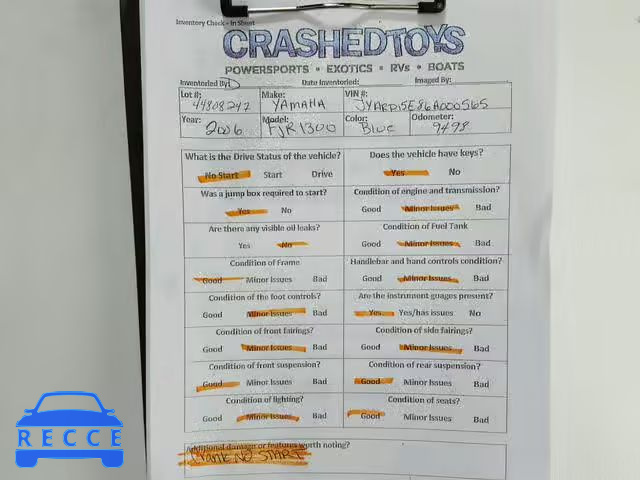 Inventory Check - In Sheet
CRASHEDTOYS
POWERSPORTS • EXOTICS • RVs • BOATS
Inventoried By: Date Inventoried: Imaged By:
Lot #: Make: VIN #:
44808242 YAMAHA JYARP15E86A000565
Year: Model: Color: Odometer:
2006 FJR1300 Blue 9498
What is the Drive Status of the vehicle? Does the vehicle have keys?
No Start Start Drive Yes No
Was a jump box required to start? Condition of engine and transmission?
Yes No Good Minor Issues Bad
Are there any visible oil leaks? Condition of Fuel Tank
Yes No Good Minor Issues Bad
Condition of Frame Handlebar and hand controls condition?
Good Minor Issues Bad Good Minor Issues Bad
Condition of the foot controls? Are the instrument guages present?
Good Minor Issues Bad Yes Yes/has issues No
Condition of front fairings? Condition of side fairings?
Good Minor Issues Bad Good Minor Issues Bad
Condition of front suspension? Condition of rear suspension?
Good Minor Issues Bad Good Minor Issues Bad
Condition of lighting? Condition of seats?
Good Minor Issues Bad Good Minor Issues Bad
Additional damage or features worth noting?
Crank NO START
RECCE